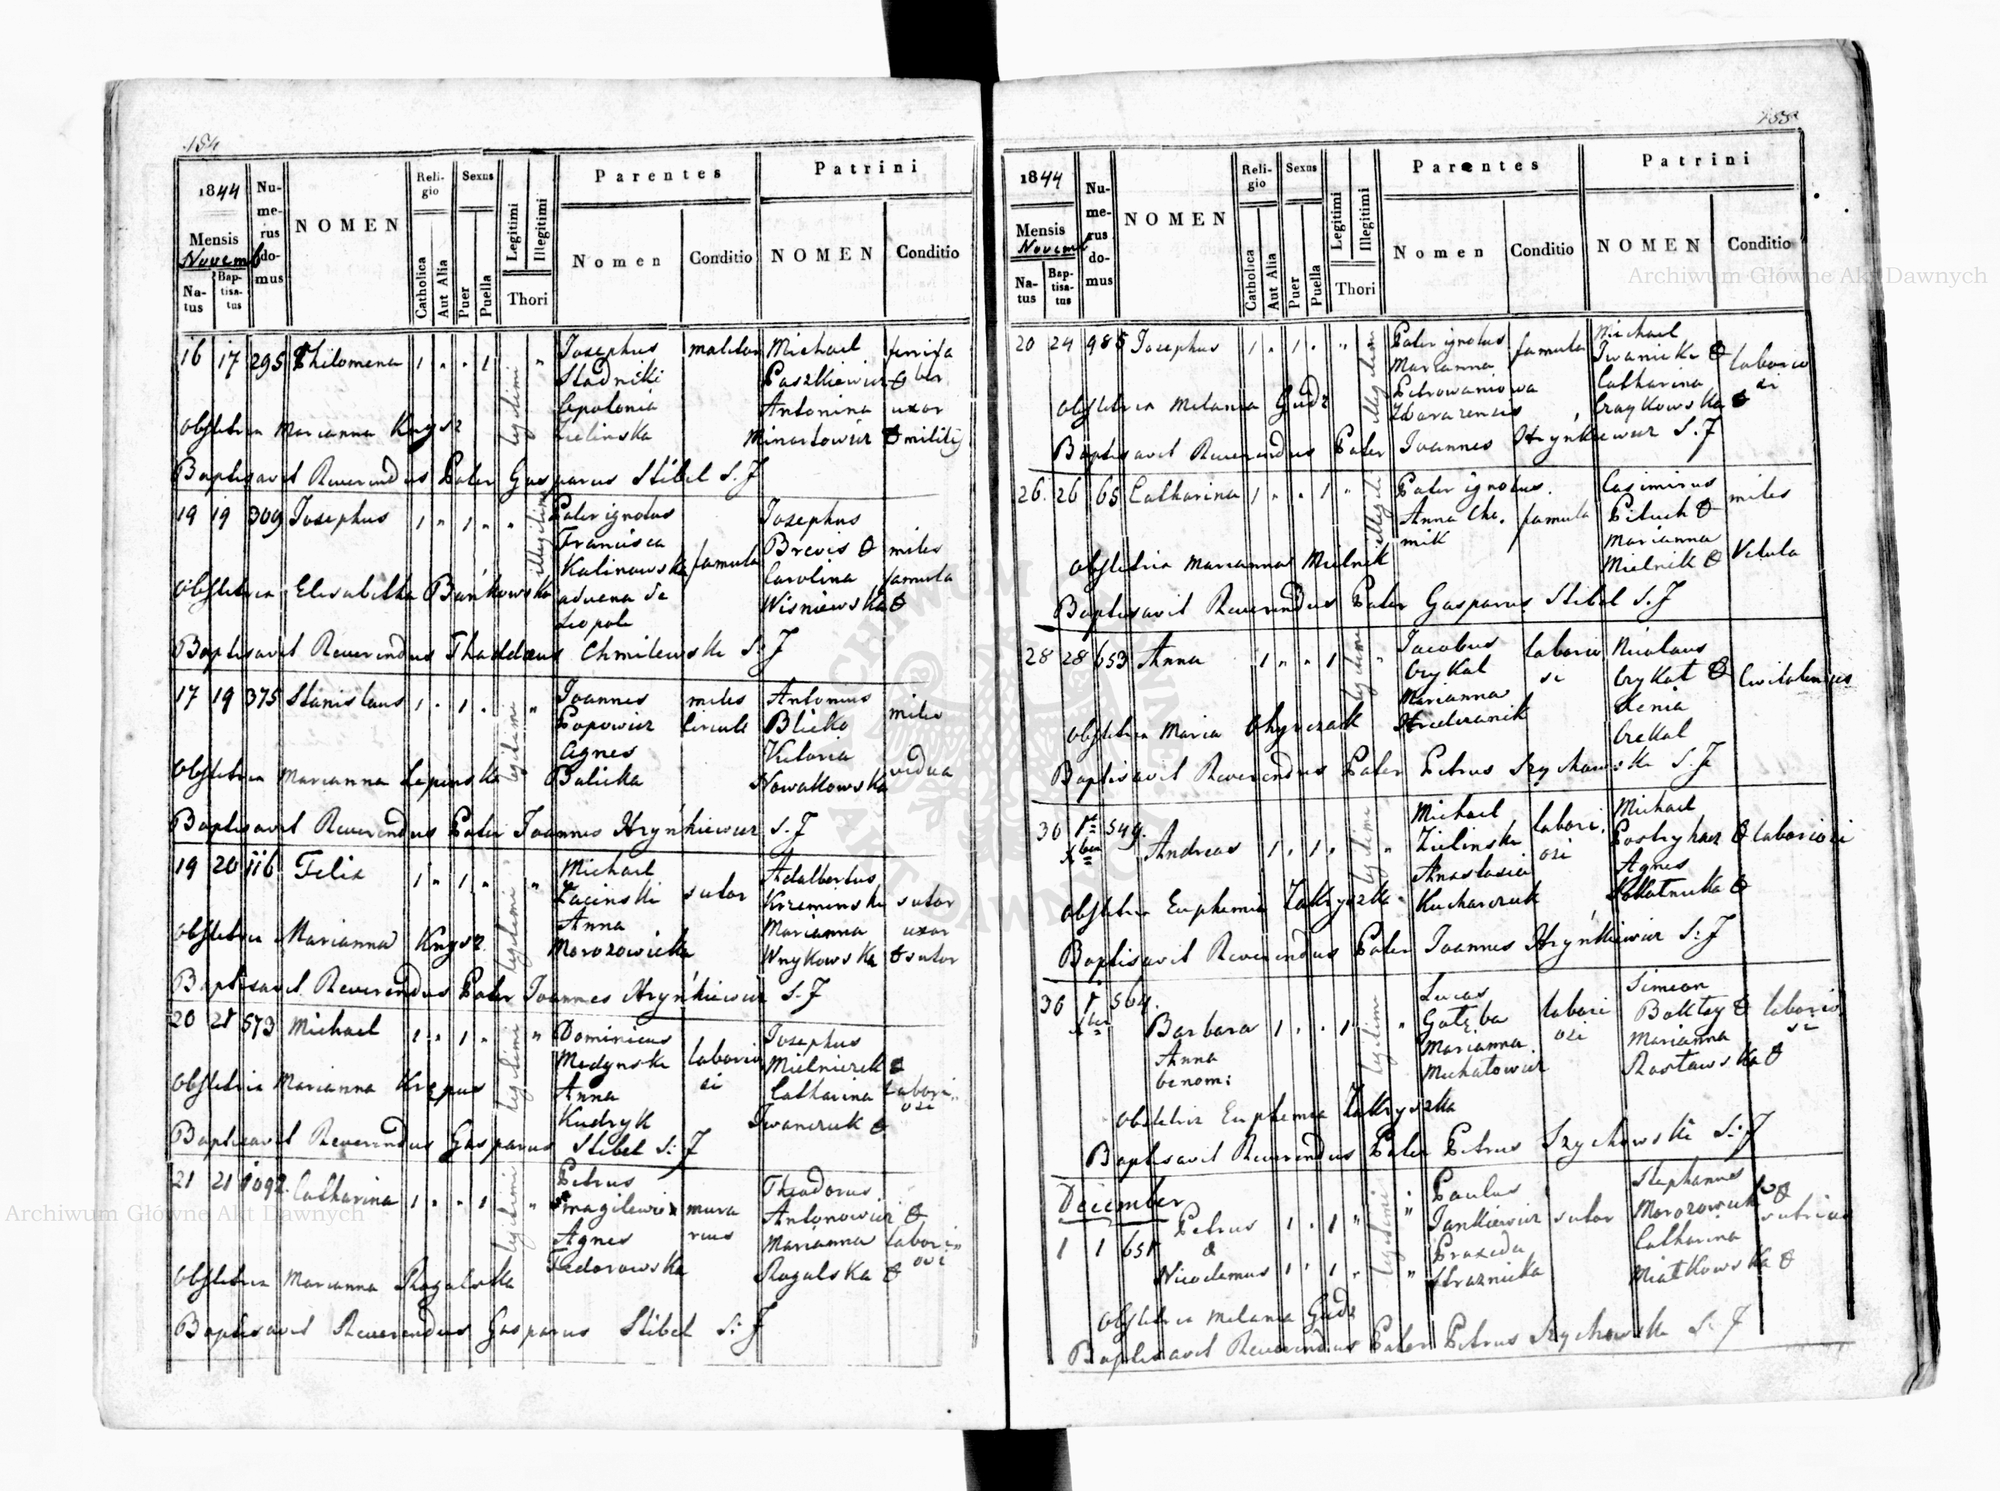 184
1844
Mensis
Novemb
Natus
Baptisatus
Numerus domus
NOMEN
Religio
Catholica
Aut Alia
Sexus
Puer
Puella
Legitimi
Illegitimi
Thori
Parentes
Nomen
Conditio
Patrini
NOMEN
Conditio
16 17 295 Philomena 1 " " 1 legitimi " Josephus molitor Michael
Stadnicki Paszkiewicz et
Apolonia Antonina uxor
Obstetrix Marianna Knysz Zielinska militis
Baptisavit Reverendus Pater Gasparus Stibel S. J
19 19 309 Josephus 1 " 1 " " illegitimi Pater ignotus Josephus
Francisca Brevis et miles
Kalinowska famula Carolina famula
Obstetrix Elisabetha Bańkowska advena de Wisniewska et
Leopole
Baptisavit Reverendus Thaddaeus Chmilewski S. J
17 19 375 Stanislaus 1 " 1 " legitimi " Joannes miles Antonius miles
Popowicz Circuli
Agnes Victoria vidua
Obstetrix Marianna Lepinska Balicka Nowakowska
Baptisavit Reverendus Pater Joannes Hryńkiewicz S. J
19 20 116 Felix 1 " 1 " legitimi " Michael sutor Adalbertus
Krzeminski sutor
Anna Marianna uxor
Obstetrix Marianna Knysz Morozowicka Wnykowska et sutor
Baptisavit Reverendus Pater Joannes Hryńkiewicz S. J
20 21 573 Michael 1 " 1 " legitimi " Dominicus Josephus
Medynski laborio Mielniczek et
Obstetrix Marianna Krzpus Anna si Catharina labori
Kudryk Iwanczuk et osi
Baptisavit Reverendus Gasparus Stibel S: J
21 21 1092 Catharina 1 " " 1 legitimi " Petrus Theodorus
Smagilewicz mura Antonowicz et
Agnes rius Marianna labori
Obstetrix Marianna Rogalska Fedorowska Rogalska et osi
Baptisavit Reverendus Gasparus Stibel S: J
185
1844
Mensis
Novemb
Natus
Baptisatus
Numerus domus
NOMEN
Religio
Catholica
Aut Alia
Sexus
Puer
Puella
Legitimi
Illegitimi
Thori
Parentes
Nomen
Conditio
Patrini
NOMEN
Conditio
20 24 985 Josephus 1 " 1 " " illegitimi Pater ignotus famula Michael
Marianna Iwanicki et laborio
Petrowaniowa Catharina si
Obstetrix Melania Gudz Zbarazensis Czaykowska et
Baptisavit Reverendus Pater Joannes Hryńkiewicz S. J
26 26 65 Catharina 1 " " 1 " illegitimi Pater ignotus. Casimirus miles
Anna Cho. famula Pituch et
mik Marianna
Obstetrix Marianna Mielnik Mielnik et
Baptisavit Reverendus Pater Gasparus Stibel S. J
28 28 653 Anna 1 " " 1 legitimi " Jacobus laborio Nicolaus
Crykal si Crykat et Civitatensis
Marianna Xenia
Obstetrix Maria Chyrczak Crekal
Baptisavit Reverendus Pater Petrus Szychowski S. J
30 1 Xber 549. Andreas 1 " 1 " legitimi " Michael labori. Michael
Zielinski osi et laboriosi
Anastasia Agnes
Obstetrix Euphemia Zakryszka Kucharczuk et
Baptisavit Reverendus Pater Joannes Hryńkiewicz S: J
30 1 Xber 564. Barbara 1 " " 1 legitimi " Lucas labori Simeon
Anna Gołęba osi et laborio
binom: Marianna Marianna si
Michałowicz Rostawska et
Obstetrix Euphemia Zakryszka
Baptisavit Reverendus Pater Petrus Szychowski S: J
December
1 1 651 Petrus 1 " 1 " legitimi " Paulus sutor Stephanus
et Jankiewicz Morozowicki et
Nicodemus 1 " 1 " " Praxeda Catharina
Strażnicka Miatkowska et
Obstetrix Melania Gudz
Baptisavit Reverendus Pater Petrus Szychowski S. J
Archiwum Główne Akt Dawnych
Archiwum Główne Akt Dawnych
ARCHIWUM GŁÓWNE AKT DAWNYCH